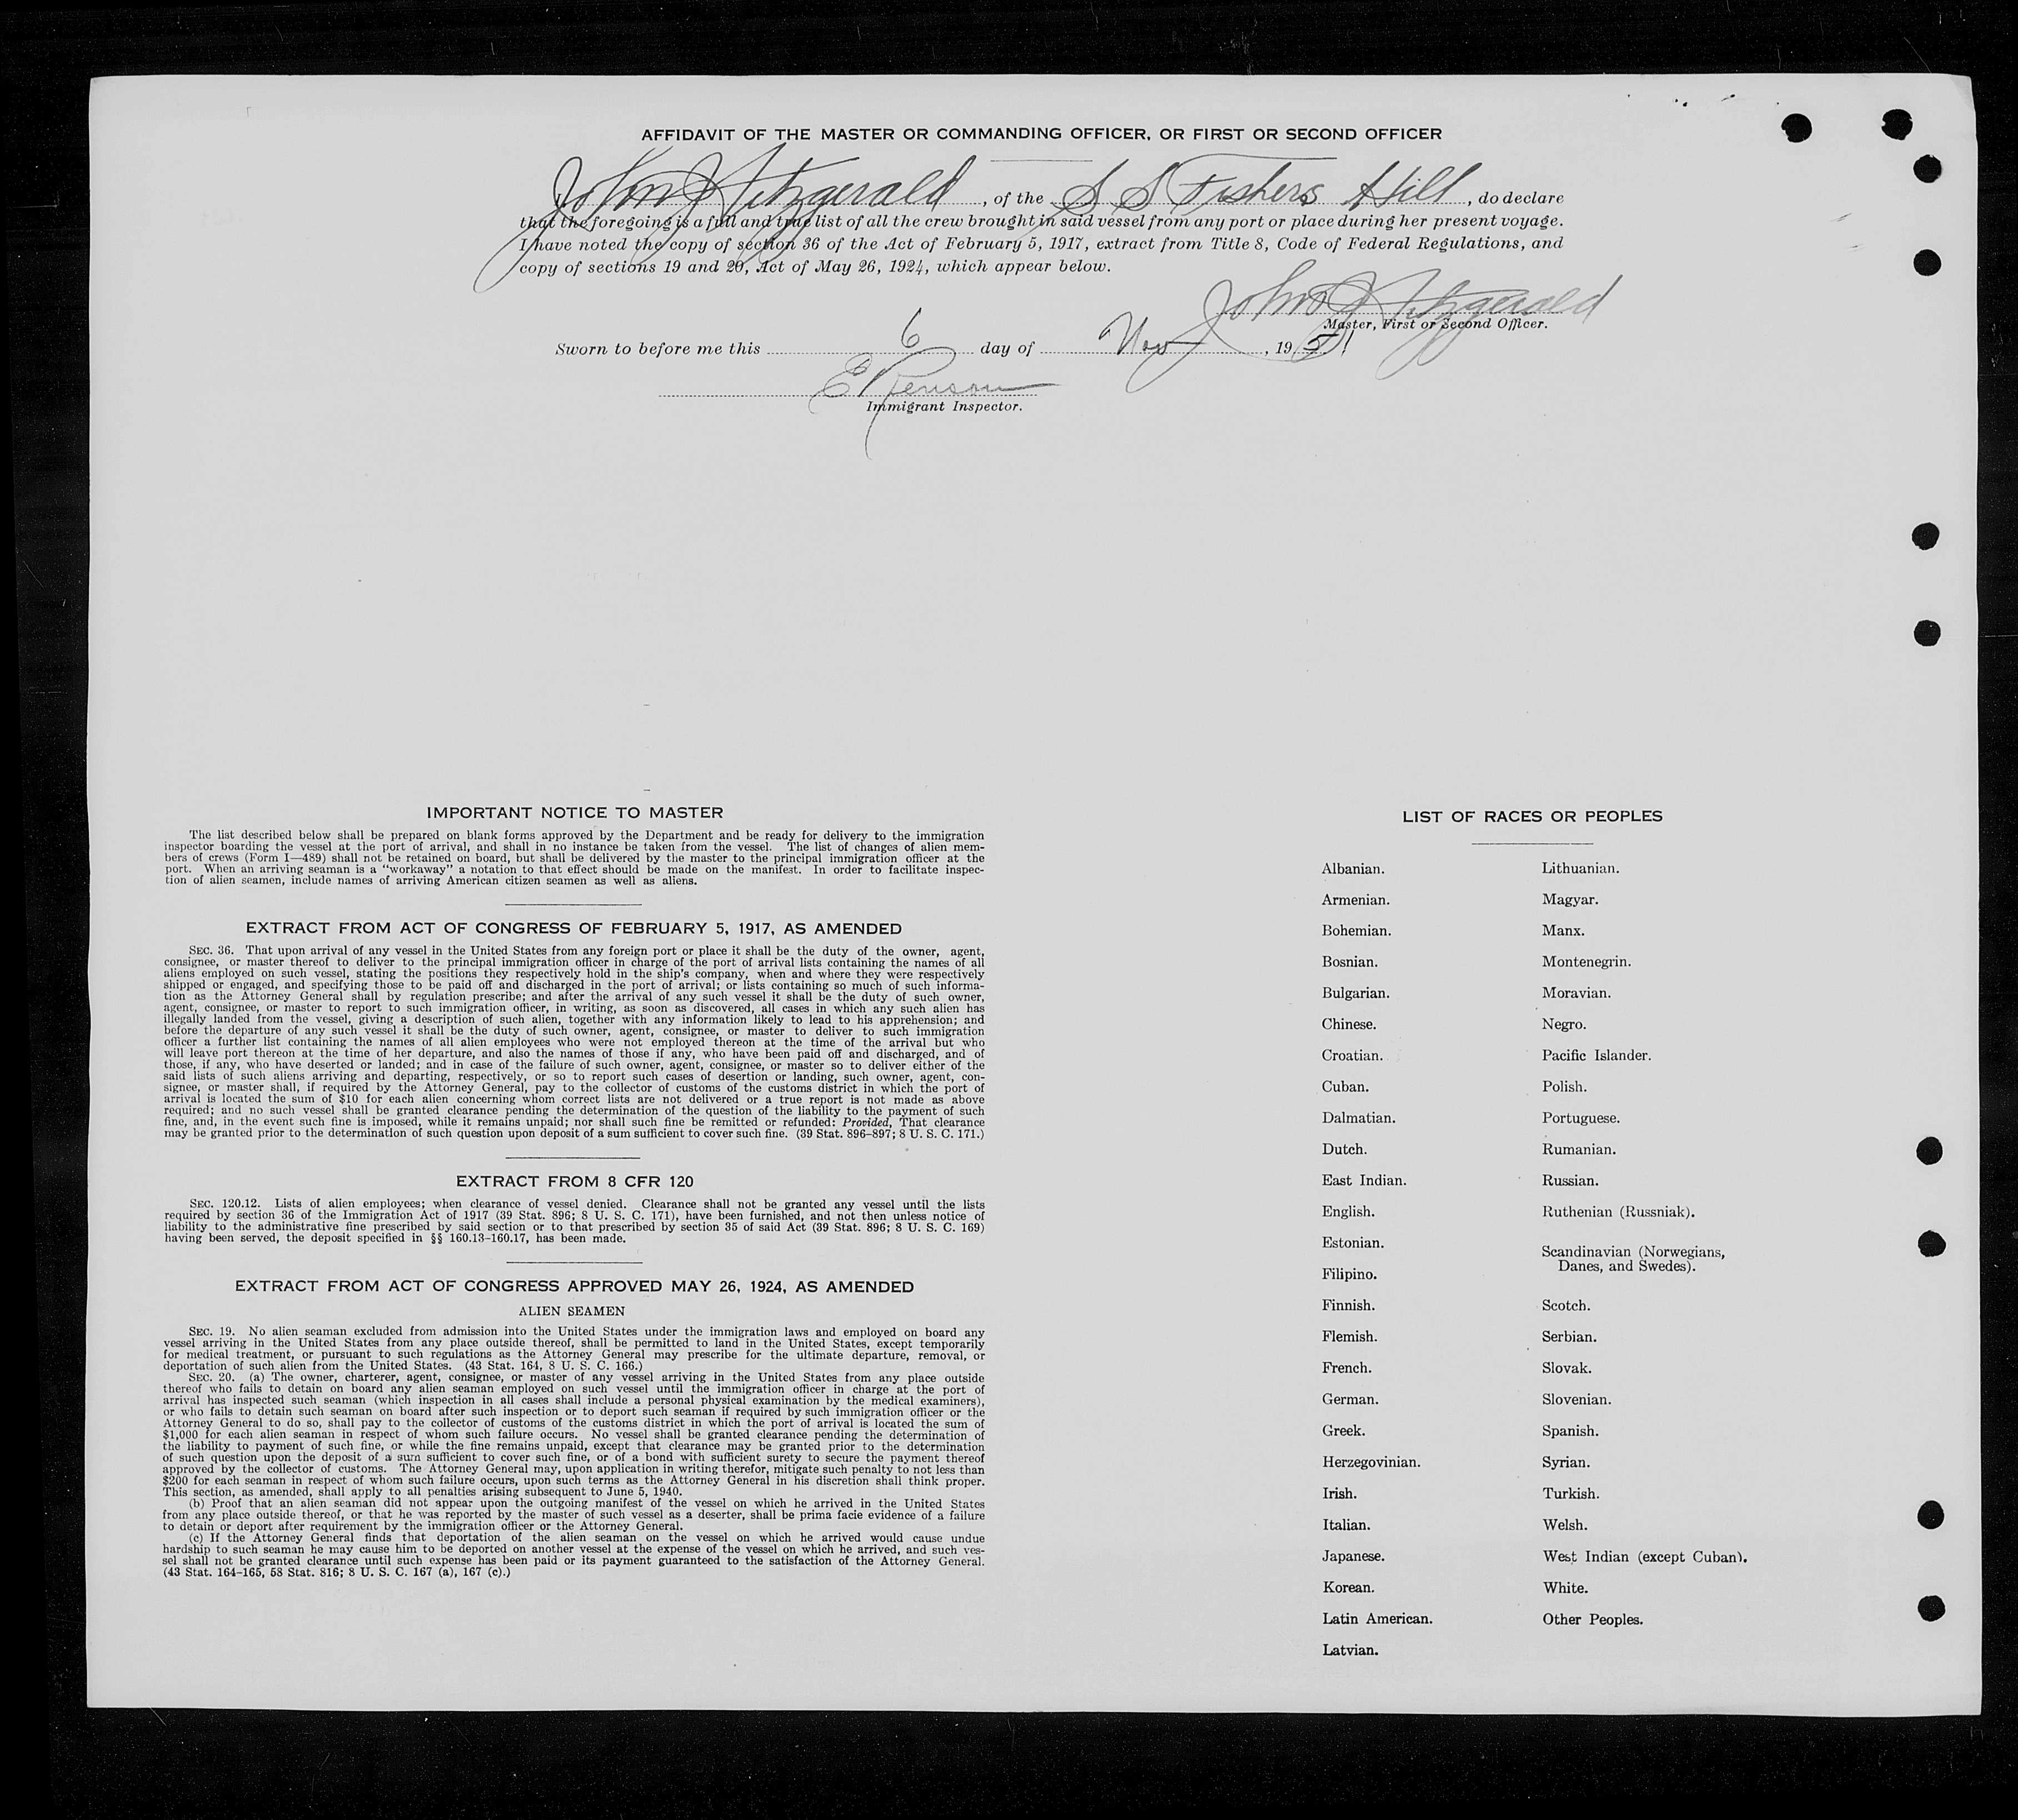 AFFIDAVIT OF THE MASTER OR COMMANDING OFFICER, OR FIRST OR SECOND OFFICER
John J Fitzgerald, of the S S Fishers Hill, do declare
that the foregoing is a full and true list of all the crew brought in said vessel from any port or place during her present voyage.
I have noted the copy of section 36 of the Act of February 5, 1917, extract from Title 8, Code of Federal Regulations, and
copy of sections 19 and 20, Act of May 26, 1924, which appear below.
John J Fitzgerald
Master, First or Second Officer.
Sworn to before me this 6 day of Nov, 1951
Immigrant Inspector.
IMPORTANT NOTICE TO MASTER
The list described below shall be prepared on blank forms approved by the Department and be ready for delivery to the immigration
inspector boarding the vessel at the port of arrival, and shall in no instance be taken from the vessel. The list of changes of alien mem-
bers of crews (Form I—489) shall not be retained on board, but shall be delivered by the master to the principal immigration officer at the
port. When an arriving seaman is a "workaway" a notation to that effect should be made on the manifest. In order to facilitate inspec-
tion of alien seamen, include names of arriving American citizen seamen as well as aliens.
EXTRACT FROM ACT OF CONGRESS OF FEBRUARY 5, 1917, AS AMENDED
SEC. 36. That upon arrival of any vessel in the United States from any foreign port or place it shall be the duty of the owner, agent,
consignee, or master thereof to deliver to the principal immigration officer in charge of the port of arrival lists containing the names of all
aliens employed on such vessel, stating the positions they respectively hold in the ship's company, when and where they were respectively
shipped or engaged, and specifying those to be paid off and discharged in the port of arrival; or lists containing so much of such informa-
tion as the Attorney General shall by regulation prescribe; and after the arrival of any such vessel it shall be the duty of such owner,
agent, consignee, or master to report to such immigration officer, in writing, as soon as discovered, all cases in which any such alien has
illegally landed from the vessel, giving a description of such alien, together with any information likely to lead to his apprehension; and
before the departure of any such vessel it shall be the duty of such owner, agent, consignee, or master to deliver to such immigration
officer a further list containing the names of all alien employees who were not employed thereon at the time of the arrival but who
will leave port thereon at the time of her departure, and also the names of those if any, who have been paid off and discharged, and of
those, if any, who have deserted or landed; and in case of the failure of such owner, agent, consignee, or master so to deliver either of the
said lists of such aliens arriving and departing, respectively, or so to report such cases of desertion or landing, such owner, agent, con-
signee, or master shall, if required by the Attorney General, pay to the collector of customs of the customs district in which the port of
arrival is located the sum of $10 for each alien concerning whom correct lists are not delivered or a true report is not made as above
required; and no such vessel shall be granted clearance pending the determination of the question of the liability to the payment of such
fine, and, in the event such fine is imposed, while it remains unpaid; nor shall such fine be remitted or refunded: Provided, That clearance
may be granted prior to the determination of such question upon deposit of a sum sufficient to cover such fine. (39 Stat. 896–897; 8 U. S. C. 171.)
EXTRACT FROM 8 CFR 120
SEC. 120.12. Lists of alien employees; when clearance of vessel denied. Clearance shall not be granted any vessel until the lists
required by section 36 of the Immigration Act of 1917 (39 Stat. 896; 8 U. S. C. 171), have been furnished, and not then unless notice of
liability to the administrative fine prescribed by said section or to that prescribed by section 35 of said Act (39 Stat. 896; 8 U. S. C. 169)
having been served, the deposit specified in §§ 160.13–160.17, has been made.
EXTRACT FROM ACT OF CONGRESS APPROVED MAY 26, 1924, AS AMENDED
ALIEN SEAMEN
SEC. 19. No alien seaman excluded from admission into the United States under the immigration laws and employed on board any
vessel arriving in the United States from any place outside thereof, shall be permitted to land in the United States, except temporarily
for medical treatment, or pursuant to such regulations as the Attorney General may prescribe for the ultimate departure, removal, or
deportation of such alien from the United States. (43 Stat. 164, 8 U. S. C. 166.)
SEC. 20. (a) The owner, charterer, agent, consignee, or master of any vessel arriving in the United States from any place outside
thereof who fails to detain on board any alien seaman employed on such vessel until the immigration officer in charge at the port of
arrival has inspected such seaman (which inspection in all cases shall include a personal physical examination by the medical examiners),
or who fails to detain such seaman on board after such inspection or to deport such seaman if required by such immigration officer or the
Attorney General to do so, shall pay to the collector of customs of the customs district in which the port of arrival is located the sum of
$1,000 for each alien seaman in respect of whom such failure occurs. No vessel shall be granted clearance pending the determination of
the liability to payment of such fine, or while the fine remains unpaid, except that clearance may be granted prior to the determination
of such question upon the deposit of a sum sufficient to cover such fine, or of a bond with sufficient surety to secure the payment thereof
approved by the collector of customs. The Attorney General may, upon application in writing therefor, mitigate such penalty to not less than
$200 for each seaman in respect of whom such failure occurs, upon such terms as the Attorney General in his discretion shall think proper.
This section, as amended, shall apply to all penalties arising subsequent to June 5, 1940.
(b) Proof that an alien seaman did not appear upon the outgoing manifest of the vessel on which he arrived in the United States
from any place outside thereof, or that he was reported by the master of such vessel as a deserter, shall be prima facie evidence of a failure
to detain or deport after requirement by the immigration officer or the Attorney General.
(c) If the Attorney General finds that deportation of the alien seaman on the vessel on which he arrived would cause undue
hardship to such seaman he may cause him to be deported on another vessel at the expense of the vessel on which he arrived, and such ves-
sel shall not be granted clearance until such expense has been paid or its payment guaranteed to the satisfaction of the Attorney General.
(43 Stat. 164–165, 58 Stat. 816; 8 U. S. C. 167 (a), 167 (c).)
LIST OF RACES OR PEOPLES
Albanian.
Armenian.
Bohemian.
Bosnian.
Bulgarian.
Chinese.
Croatian.
Cuban.
Dalmatian.
Dutch.
East Indian.
English.
Estonian.
Filipino.
Finnish.
Flemish.
French.
German.
Greek.
Herzegovinian.
Irish.
Italian.
Japanese.
Korean.
Latin American.
Latvian.
Lithuanian.
Magyar.
Manx.
Montenegrin.
Moravian.
Negro.
Pacific Islander.
Polish.
Portuguese.
Rumanian.
Russian.
Ruthenian (Russniak).
Scandinavian (Norwegians,
Danes, and Swedes).
Scotch.
Serbian.
Slovak.
Slovenian.
Spanish.
Syrian.
Turkish.
Welsh.
West Indian (except Cuban).
White.
Other Peoples.